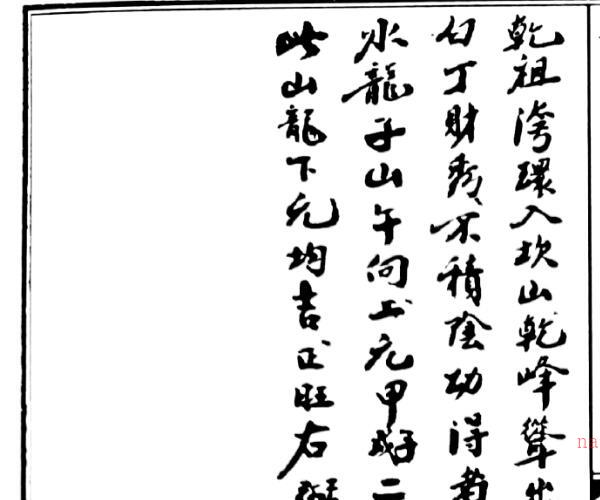 乾祖湾環入坎山乾峰聳出
勾丁財秀不積陰功得
水龍子山午向上元甲子二
此山龍下元均吉正旺右
na